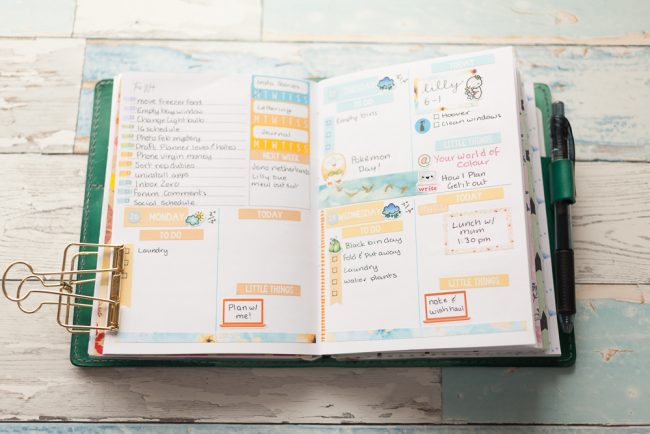 move freezer food
Empty bay window
Change light bulb
IG schedule
Photo felt mystery
Draft Planner
Phone virgin money
Sort rep duties
uninstall apps
Inbox Zero
Forum Comments
Social schedule
Insta Stories
MTWTFSS
Lettering
MTWTFSS
Journal
MTWTFSS
NEXT WEEK
Lilly Sue
meal out
26 MONDAY
TO DO
Laundry
TODAY
LITTLE THINGS
Plan w/
me!
TO DO
Empty bins
Pokemon
Day!
TODAY
Lilly
6-1
Hoover
Clean windows
LITTLE THINGS
Your world of
colour
write
How I Plan
Get it out
WEDNESDAY
TO DO
Black bin day
Fold & put away
Laundry
water plants
Lunch w/
mum
1.30pm
LITTLE THINGS
note &
wish haul